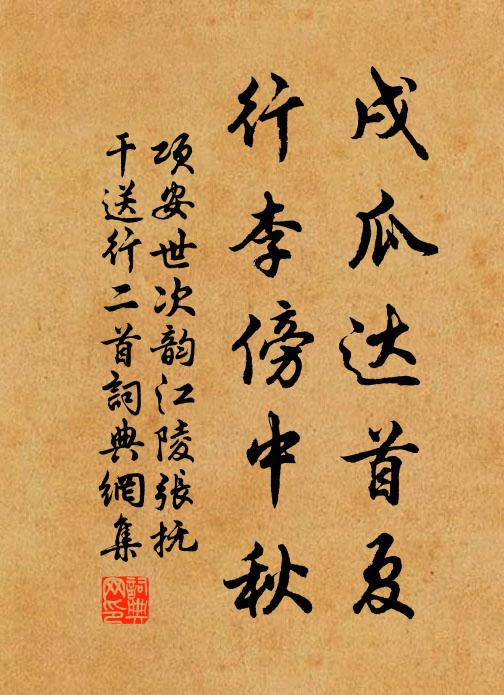 戍瓜达首夏
行李傍中秋
项安世次韵江陵張抚
干送行二首詞典網集
詞典网印